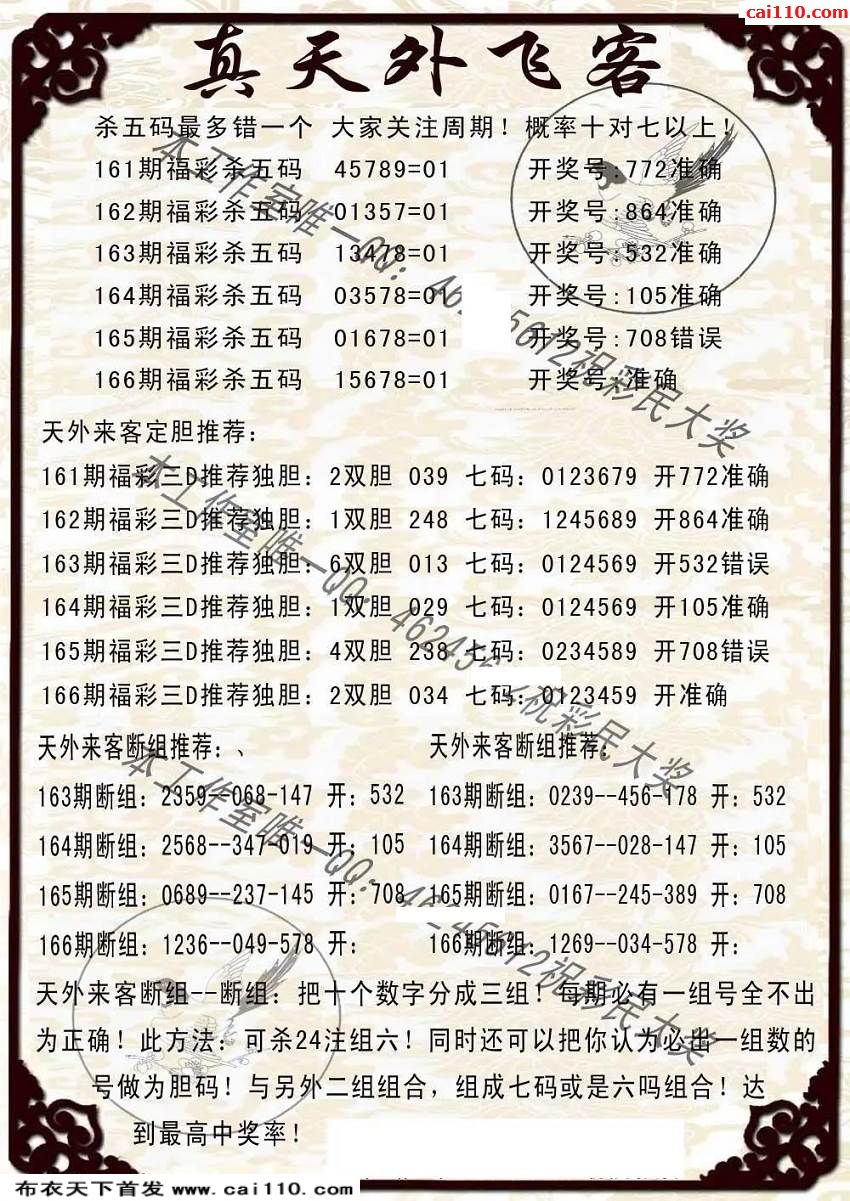 cai110.com
真天外飞客
杀五码最多错一个 大家关注周期！概率十对七以上！
161期福彩杀五码 45789=01 开奖号:772准确
162期福彩杀五码 01357=01 开奖号:864准确
163期福彩杀五码 13478=01 开奖号:532准确
164期福彩杀五码 03578=01 开奖号:105准确
165期福彩杀五码 01678=01 开奖号:708错误
166期福彩杀五码 15678=01 开奖号:准确
天外来客定胆推荐：
161期福彩三D推荐独胆：2双胆 039 七码：0123679 开772准确
162期福彩三D推荐独胆：1双胆 248 七码：1245689 开864准确
163期福彩三D推荐独胆：6双胆 013 七码：0124569 开532错误
164期福彩三D推荐独胆：1双胆 029 七码：0124569 开105准确
165期福彩三D推荐独胆：4双胆 238 七码：0234589 开708错误
166期福彩三D推荐独胆：2双胆 034 七码：0123459 开准确
天外来客断组推荐：、 天外来客断组推荐：
163期断组：2359--068-147 开：532 163期断组：0239--456-178 开：532
164期断组：2568--347-019 开：105 164期断组：3567--028-147 开：105
165期断组：0689--237-145 开：708 165期断组：0167--245-389 开：708
166期断组：1236--049-578 开： 166期断组：1269--034-578 开：
天外来客断组--断组：把十个数字分成三组！每期必有一组号全不出
为正确！此方法：可杀24注组六！同时还可以把你认为必出一组数的
号做为胆码！与另外二组组合，组成七码或是六吗组合！达
到最高中奖率！
本工作室唯一QQ：
祝彩民大奖
本工作室唯一QQ：
祝彩民大奖
本工作室唯一QQ：
祝彩民大奖
布衣天下首发 www.cai110.com